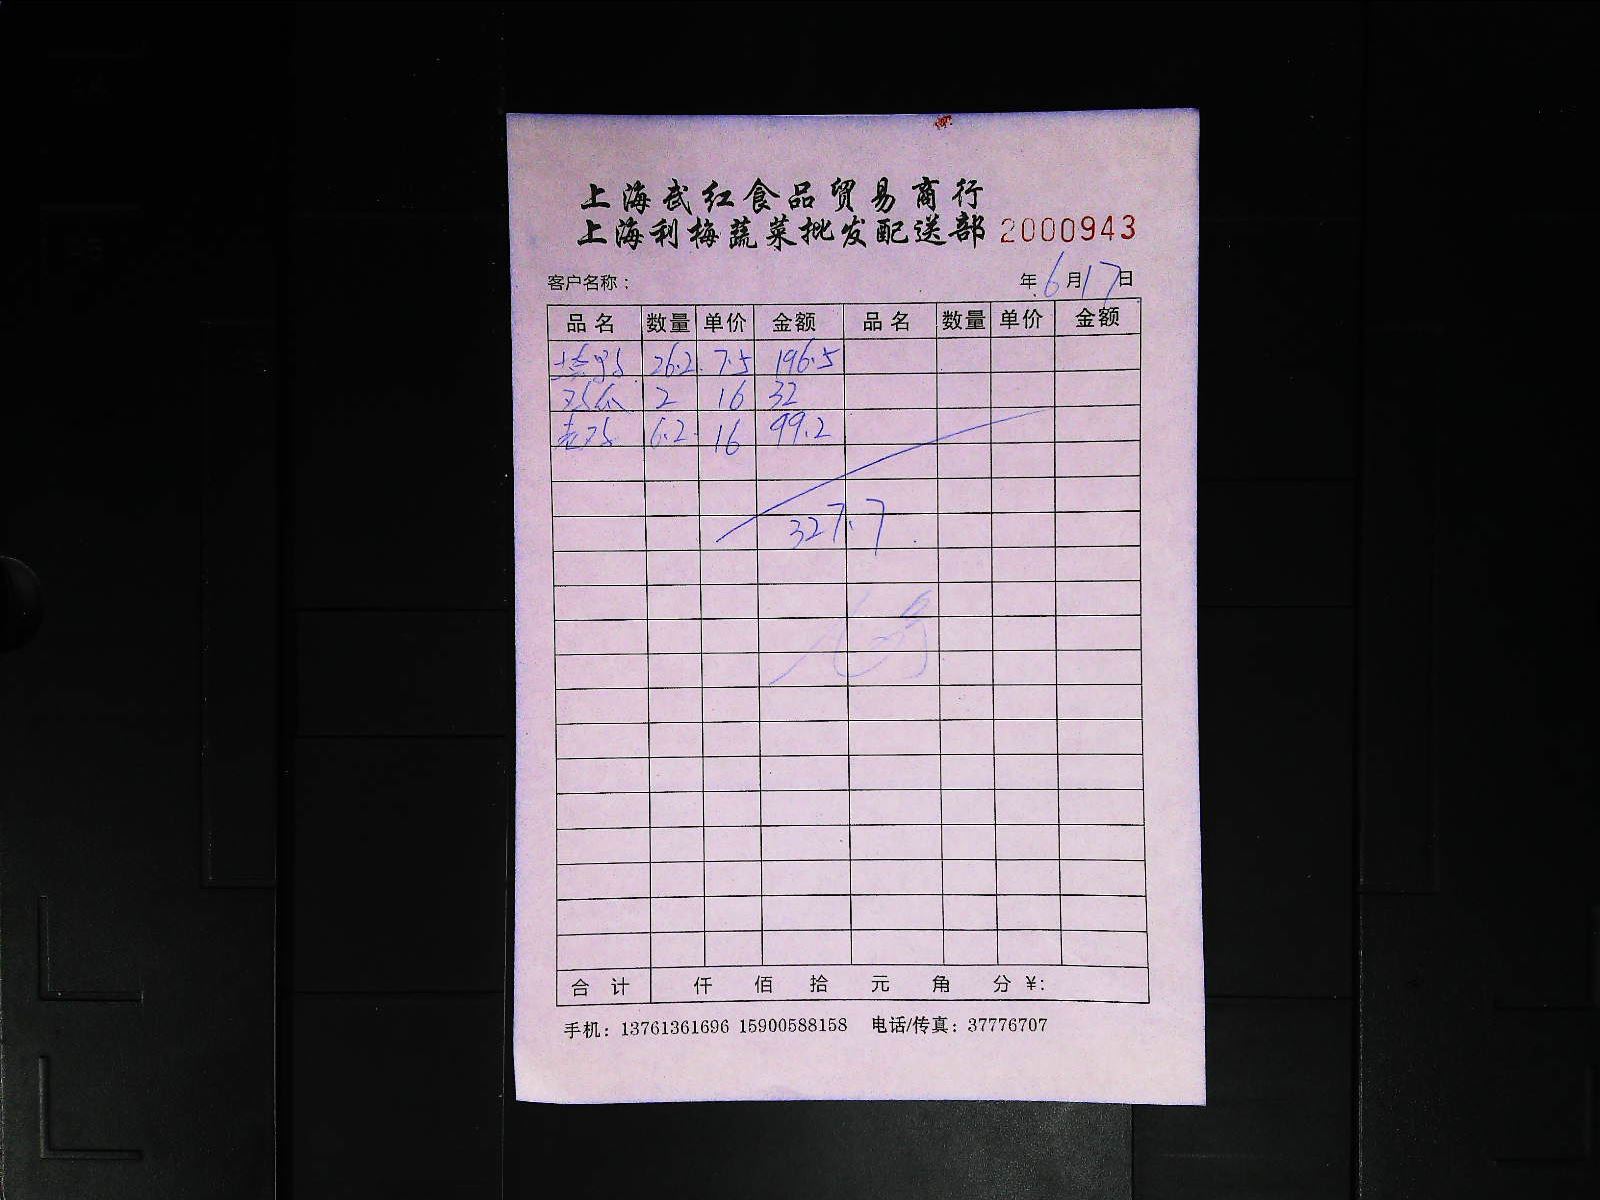 上海武红食品贸易商行
上海利梅蔬菜批发配送部 2000943
客户名称： 年 6 月 17 日
品名 数量 单价 金额 品名 数量 单价 金额
26.2 7.5 196.5
鸡爪 2 16 32
老鸡 6.2 16 99.2
327.7
合计 仟 佰 拾 元 角 分 ¥:
手机：13761361696 15900588158 电话/传真：37776707